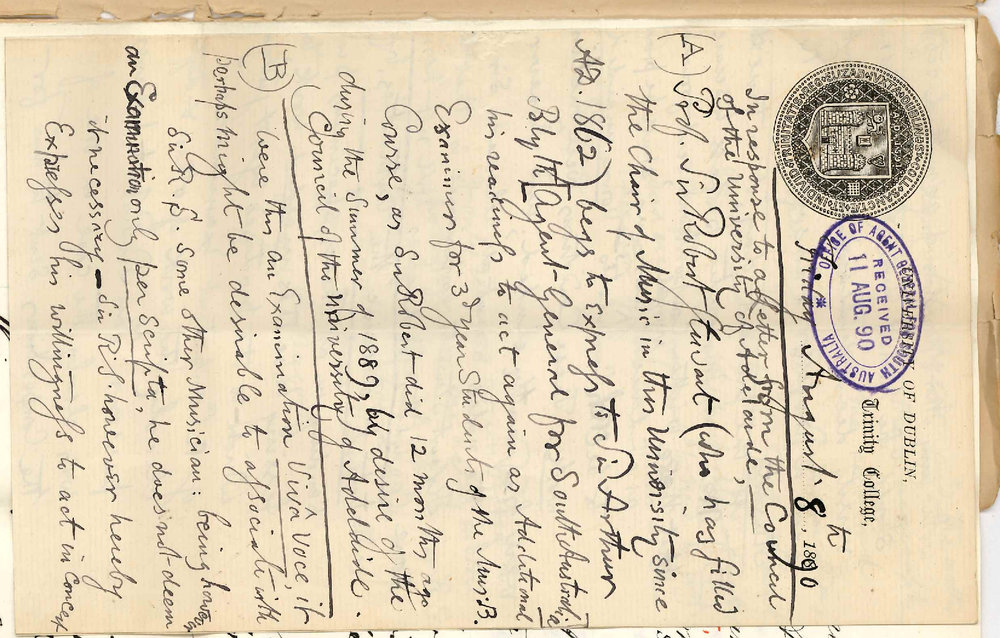 OF DUBLIN,
Trinity College,
Friday August 8th, 1890
OFFICE OF AGENT GENERAL FOR SOUTH AUSTRALIA
RECEIVED
11 AUG. 90
In response to a letter from the Council
of the University of Adelaide,—
(A) Prof. Sir Robert Stewart (who has filled
the Chair of Music in this University since
A.D. 1862) begs to express to Sir Arthur
Blyth Agent-General for South Australia
his readiness to act again as Additional
Examiner for 3d year Students of the Mus: B.
Course, as Sir Robert did 12 months ago
during the Summer of 1889, by desire of the
Council of the University of Adelaide.
(B) Were this an Examination Vivâ Voce, it
perhaps might be desirable to associate with
Sir R. S. some other Musician: being however
an Examination only per Scripta, he does not deem
it necessary — Sir R. S. however hereby
Expresses his willingness to act in concert